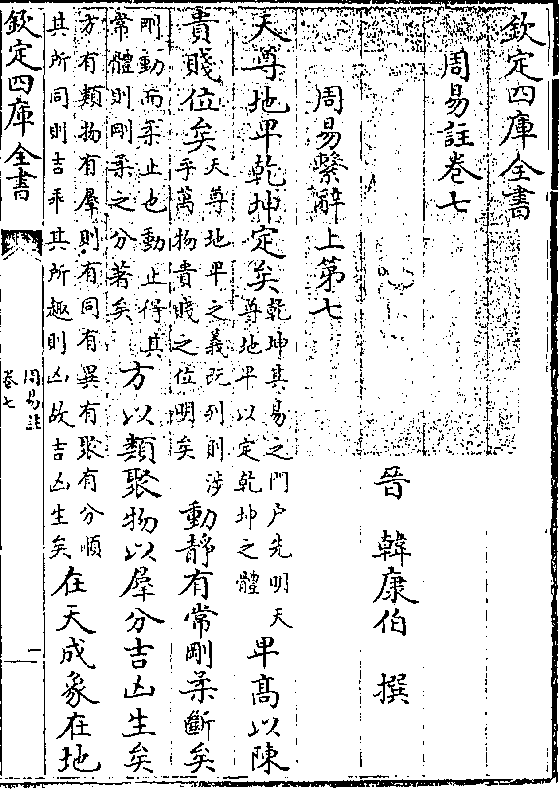 欽定四庫全書
周易註卷七
晉 韓康伯 撰
周易繫辭上第七
天尊地卑乾坤定矣
乾坤其易之門户先明天
尊地卑以定乾坤之體
卑髙以陳
貴賤位矣
天尊地卑之義既列則涉
乎萬物貴賤之位明矣
動靜有常剛柔斷矣
剛動而柔止也動止得其
常體則剛柔之分著矣
方以類聚物以羣分吉凶生矣
方有類物有羣則有同有異有聚有分順
其所同則吉乖其所趣則凶故吉凶生矣
在天成象在地
欽定四庫全書
周易註
卷七
一